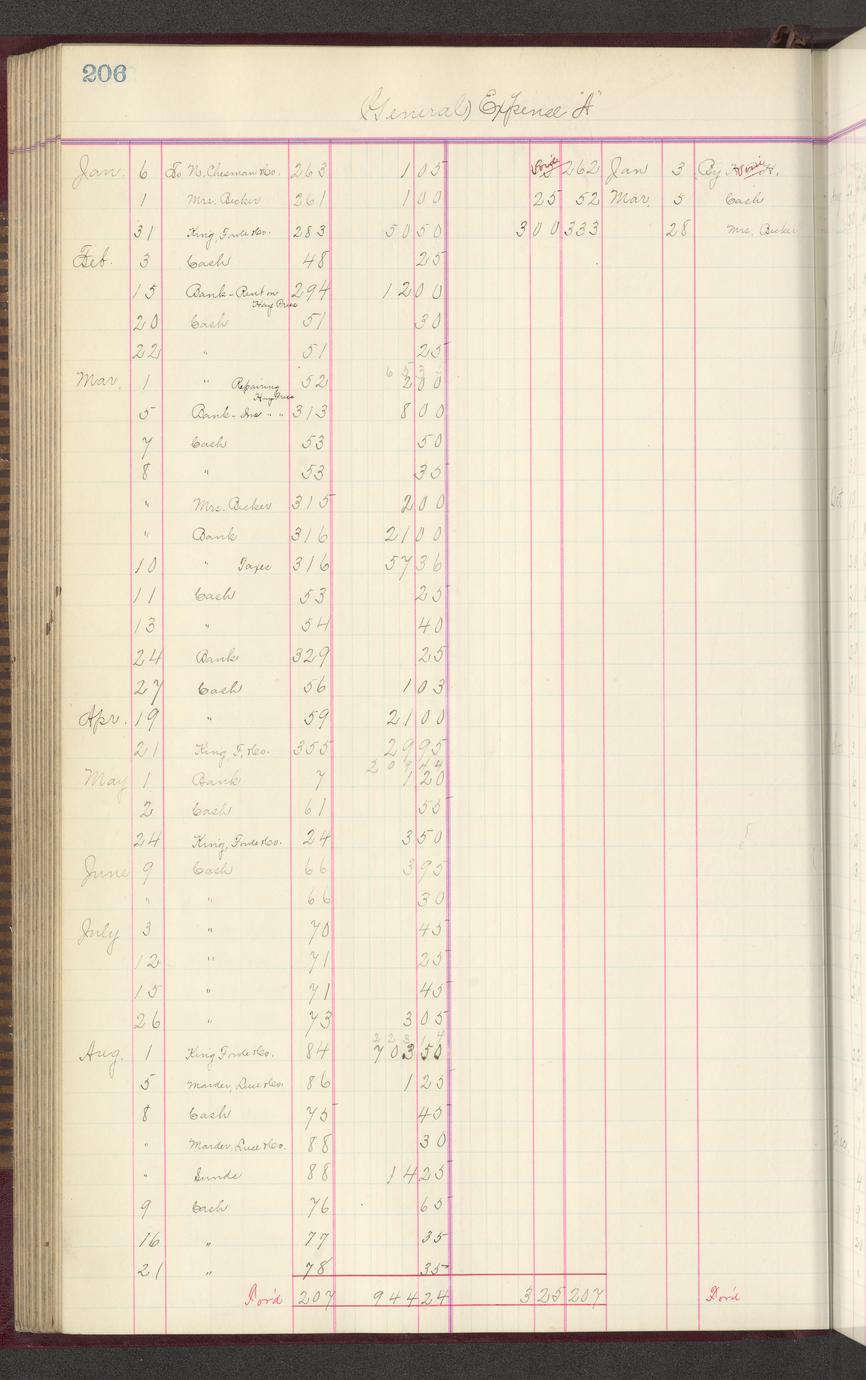 206
(General) Expense "A"
Jan. 6 To N. Chesman & Co. 263 1 05 262 Jan 3 By
1 Mrs. Bicker 261 1 00 25 52 Mar. 5 Cash
31 King, Forde & Co. 283 50 50 3 00 333 28 Mrs. Bicker
Feb. 3 Cash 48 25
15 Bank - Rent on 294 12 00
20 Cash 51 30
22 " 51 25
Mar. 1 " Repairing 52 2 00
5 Bank - Ins " " 313 8 00
7 Cash 53 50
8 " 53 35
" Mrs. Bicker 315 2 00
" Bank 316 21 00
10 " Taxes 316 57 36
11 Cash 53 25
13 " 54 40
24 Bank 329 25
27 Cash 56 1 03
Apr. 19 " 59 21 00
21 King F. & Co. 355 29 95
209 44
May 1 Bank 7 1 20
2 Cash 61 55
24 King, Forde & Co. 24 3 50
June 9 Cash 66 3 95
" " 66 30
July 3 " 70 45
12 " 71 25
15 " 71 45
26 " 73 3 05
Aug. 1 King Forde & Co. 84 703 50
5 Marder, Luse & Co. 86 1 25
8 Cash 75 45
" Marder, Luse & Co. 88 30
" Sunds 88 14 25
9 Cash 76 65
16 " 77 35
21 " 78 35
For'd 207 944 24 3 25 207 For'd